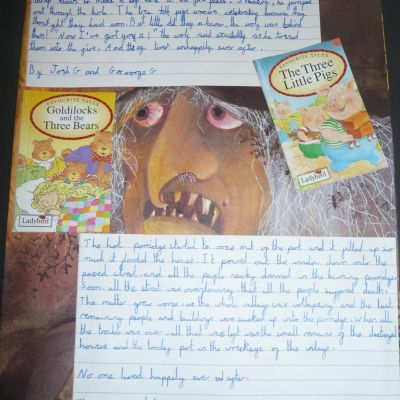 out through the hole. The three little pigs were celebrating because they
thought they had won. But little did they know, the wolf was behind
them! Now I've got you all!" the wolf said excitedly as he tossed
them into the fire. And they lived unhappily ever after.
By Josh G and George G
FAVOURITE TALES
Goldilocks
and the
Three Bears
Ladybird
FAVOURITE TALES
The Three
Little Pigs
Ladybird
The hot porridge started to ooze out of the pot and it filled up so
much it flooded the house. It poured out the window down onto the
paved street and all the people nearby drowned in the burning porridge.
Soon all the street was overflowing that all the people suffered death.
The matter grew worse as the whole village was collapsing and the last
remaining people and buildings were sucked up into the porridge. When all
the trouble was over all that was left was the small remains of the destroyed
houses and the lonley pot in the wreckage of the village.
No one lived happily ever after.